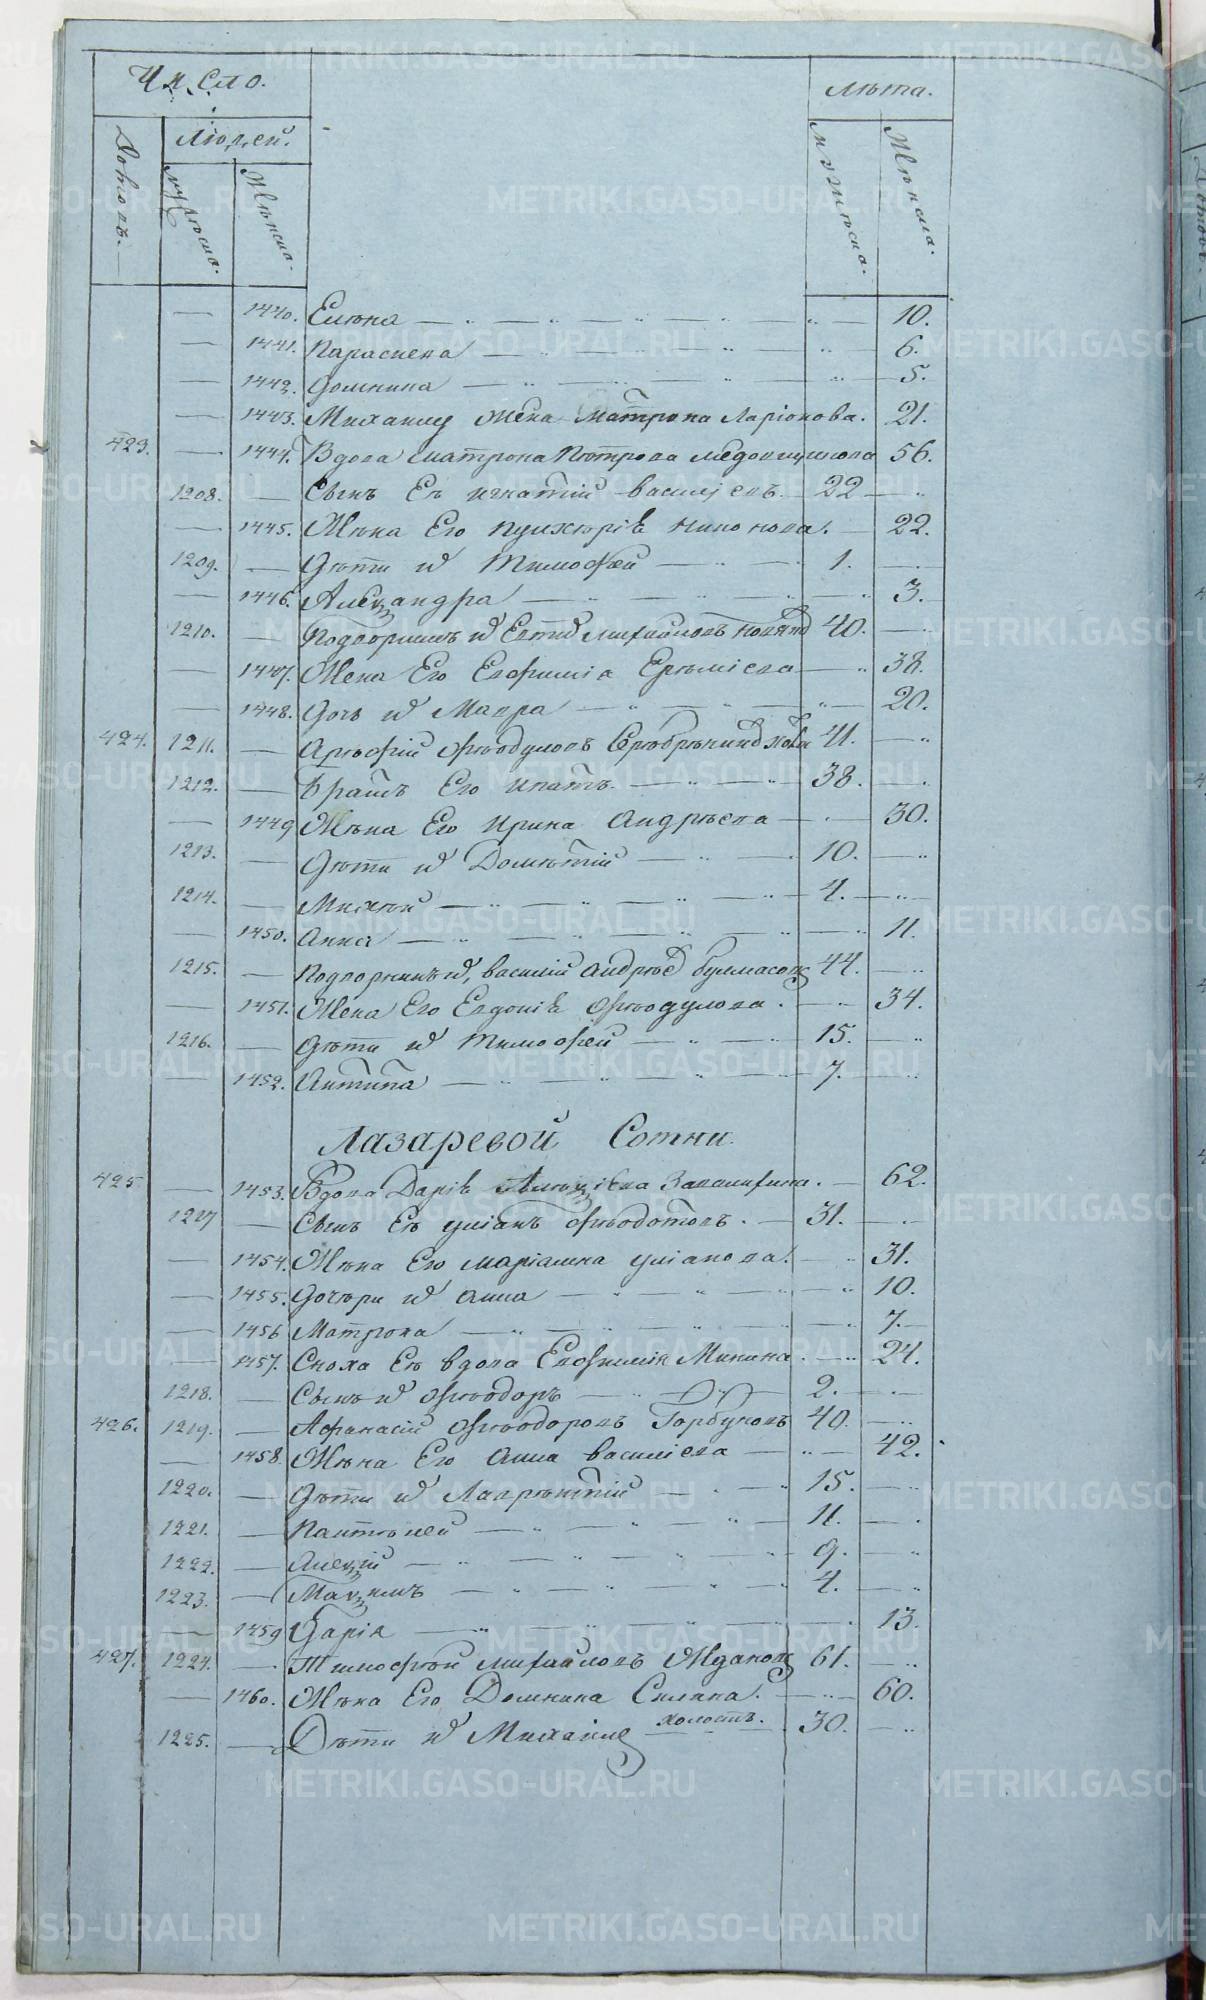 Число.
Лѣта.
Людей.
Домовъ.
Мужеска.
Женска.
Мужеска.
Женска.
— 1440. Елена — 10.
— 1441. Параскева — 6.
— 1442. Домнина — 5.
— 1443. Михаилу жена Матрона Ларіонова. 21.
423. — 1444. Вдова Матрона Петрова 56.
1208. — Сынъ Ея Игнатій Василіевъ — 22 —
— 1445. Жена Его Пулхерія Никонова. — 22.
1209. — Дети их Тимофей — 1. —
— 1446. Александра — 3.
1210. — Михайловъ 40. —
— 1447. Жена Его Евфимiа Еремiева — 38.
— 1448. Дочь их Мавра — 20.
424. 1211. — Арефій Феодуловъ 41. —
1212. — Братъ Его Ипатъ. — 38. —
— 1449 Жена Его Ирина Андреева — 30.
1213. — Дети их Дометій — 10. —
1214. — Михей — 4. —
— 1450. Анна — 11.
1215. — Василій 44. —
— 1451. Жена Его Евдокія Феодулова. — 34.
1216. — Дети их Тимофей — 15. —
— 1452. Антипа — 7. —
Лазаревой Сотни.
425 — 1453. Вдова Дарія — 62.
1217 — Сынъ Ея Уліанъ Феодотовъ. — 31. —
— 1454. Жена Его Маріамна Уліанова. — 31.
— 1455. Дочери их Анна — 10.
— 1456 Матрона — 7.
— 1457. Сноха Ея вдова Евфимія Минина. — 24.
1218. — Сынъ их Феодоръ — 2. —
426. 1219. — Афанасій Феодоровъ Горбуновъ 40. —
— 1458. Жена Его Анна Василіева — 42.
1220. — Дети их Лаврентій — 15. —
1221. — Пантелей — 11. —
1222. — Алексій — 9. —
1223. — Максимъ — 4. —
— 1459 Дарія — 13.
427. 1224. — Тимофей Михайловъ Ждановъ 61. —
— 1460. Жена Его Домнина Силина. — 60.
1225. — Дети их Михаилъ холостъ. 30. —
METRIKI.GASO-URAL.RU